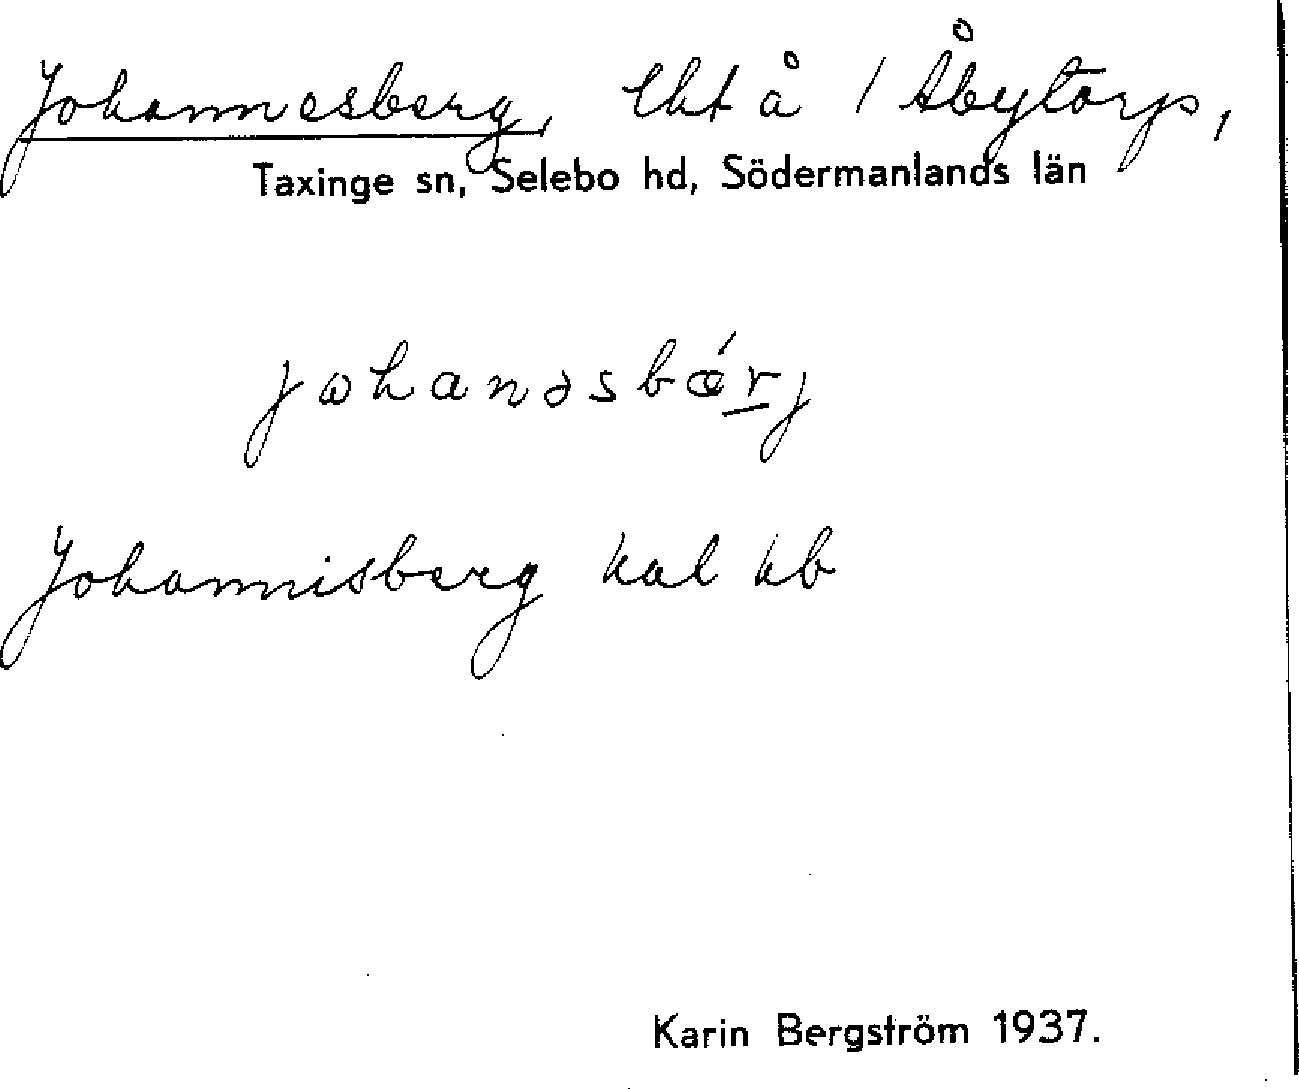 Johannesberg, lht å / Åbytorp,
Taxinge sn, Selebo hd, Södermanlands län
johanəsbǽr̲j
Johannisberg kal kb
Karin Bergström 1937.